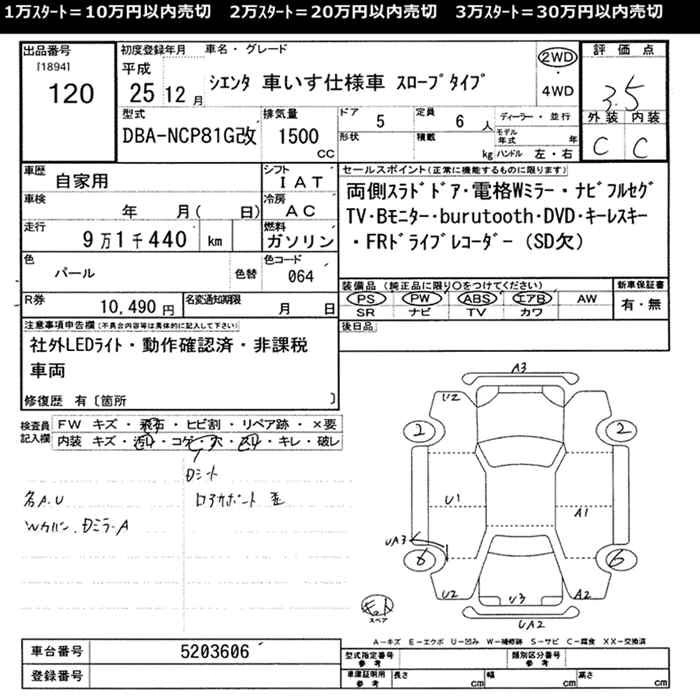 1万ｽﾀｰﾄ＝10万円以内売切　2万ｽﾀｰﾄ＝20万円以内売切　3万ｽﾀｰﾄ＝30万円以内売切
出品番号
[1894]
120
初度登録年月
平成
25 12 月
車名・グレード
シエンタ 車いす仕様車 ｽﾛｰﾌﾟﾀｲﾌﾟ
2WD
4WD
評価点
3.5
外装 内装
C C
型式
DBA-NCP81G改
排気量
1500
cc
ドア 5
定員 6 人
形状
積載 kg
ディーラー・並行
モデル年式 年
ハンドル 左・右
車歴
自家用
シフト
IAT
車検
年 月( 日)
冷房
AC
走行
9万1千440 km
燃料
ガソリン
色
パール
色替
色コード
064
R券
10,490 円
名変通知期限
月 日
セールスポイント(正常に機能するものに限ります)
両側ｽﾗﾄﾞﾄﾞｱ・電格Wミラー・ﾅﾋﾞﾌﾙｾｸﾞ
TV・Bﾓﾆﾀｰ・burutooth・DVD・ｷｰﾚｽｷｰ
・FRﾄﾞﾗｲﾌﾞﾚｺｰﾀﾞｰ (SD欠)
装備品 (純正品に限り○をつけてください)
PS PW ABS エアB AW
SR ナビ TV カワ
新車保証書
有・無
後日品
注意事項申告欄(不具合内容等は具体的に記入して下さい)
社外LEDﾗｲﾄ・動作確認済・非課税
車両
修復歴 有〔箇所 〕
検査員記入欄
FW キズ・飛石・ヒビ割・リペア跡・×要
内装 キズ・汚れ・コゲ・穴・スレ・キレ・破レ
Dシート
各A.U
Wカバー.DミラーA
A3
U2
2
2
U1
A1
UA3
6
6
U2
U3
A2
UA2
スペア
A－キズ E－エクボ U－凹み W－補修跡 S－サビ C－腐食 XX－交換済
車台番号
5203606
登録番号
型式指定番号
参考
類別区分番号
参考
車庫証明用
参考
長さ cm
幅 cm
高さ cm